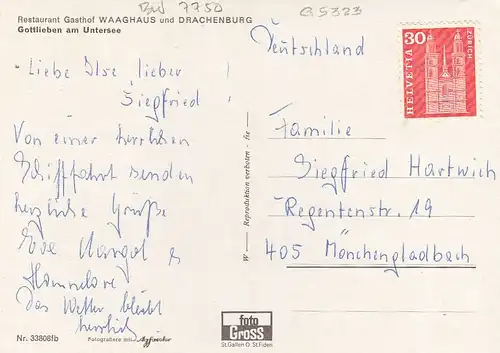 Bd 7750
G5323
Restaurant Gasthof WAAGHAUS und DRACHENBURG
Gottlieben am Untersee
Liebe Ilse, lieber
Siegfried!
Von einer herrlichen
Schifffahrt senden
herzliche Grüße
Eure Margot &
Hannelore
Das Wetter bleibt
herrlich
Nr. 33808fb
Fotografiere mit
W — Reproduktion verboten - fix —
foto
Gross
St.Gallen O. St.Fiden
30
HELVETIA
ZÜRICH
Deutschland
Familie
Siegfried Hartwich
Regentenstr. 19
405 Mönchengladbach